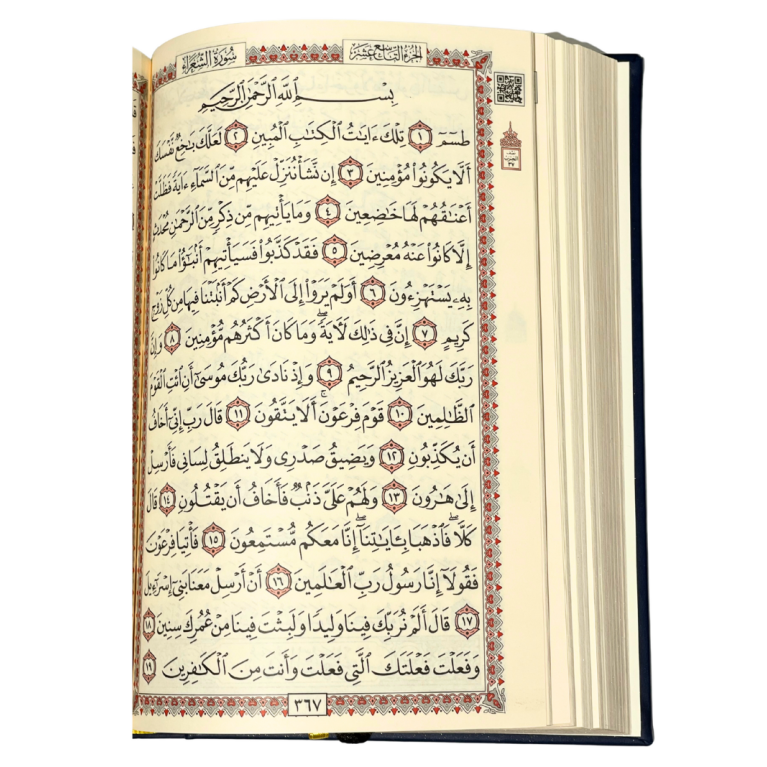 الجزء التاسع عشر
سورة الشعراء
بِسْمِ ٱللَّهِ ٱلرَّحْمَٰنِ ٱلرَّحِيمِ
طسٓمٓ ١ تِلْكَ ءَايَٰتُ ٱلْكِتَٰبِ ٱلْمُبِينِ ٢ لَعَلَّكَ بَٰخِعٌ نَّفْسَكَ
أَلَّا يَكُونُوا۟ مُؤْمِنِينَ ٣ إِن نَّشَأْ نُنَزِّلْ عَلَيْهِم مِّنَ ٱلسَّمَآءِ ءَايَةً فَظَلَّتْ
أَعْنَٰقُهُمْ لَهَا خَٰضِعِينَ ٤ وَمَا يَأْتِيهِم مِّن ذِكْرٍ مِّنَ ٱلرَّحْمَٰنِ مُحْدَثٍ
إِلَّا كَانُوا۟ عَنْهُ مُعْرِضِينَ ٥ فَقَدْ كَذَّبُوا۟ فَسَيَأْتِيهِمْ أَنۢبَٰٓؤُا۟ مَا كَانُوا۟
بِهِۦ يَسْتَهْزِءُونَ ٦ أَوَلَمْ يَرَوْا۟ إِلَى ٱلْأَرْضِ كَمْ أَنۢبَتْنَا فِيهَا مِن كُلِّ زَوْجٍ
كَرِيمٍ ٧ إِنَّ فِى ذَٰلِكَ لَءَايَةً ۖ وَمَا كَانَ أَكْثَرُهُم مُّؤْمِنِينَ ٨ وَإِنَّ
رَبَّكَ لَهُوَ ٱلْعَزِيزُ ٱلرَّحِيمُ ٩ وَإِذْ نَادَىٰ رَبُّكَ مُوسَىٰٓ أَنِ ٱئْتِ ٱلْقَوْمَ
ٱلظَّٰلِمِينَ ١٠ قَوْمَ فِرْعَوْنَ ۚ أَلَا يَتَّقُونَ ١١ قَالَ رَبِّ إِنِّىٓ أَخَافُ
أَن يُكَذِّبُونِ ١٢ وَيَضِيقُ صَدْرِى وَلَا يَنطَلِقُ لِسَانِى فَأَرْسِلْ
إِلَىٰ هَٰرُونَ ١٣ وَلَهُمْ عَلَىَّ ذَنۢبٌ فَأَخَافُ أَن يَقْتُلُونِ ١٤ قَالَ
كَلَّا ۖ فَٱذْهَبَا بِـَٔايَٰتِنَآ ۖ إِنَّا مَعَكُم مُّسْتَمِعُونَ ١٥ فَأْتِيَا فِرْعَوْنَ
فَقُولَآ إِنَّا رَسُولُ رَبِّ ٱلْعَٰلَمِينَ ١٦ أَنْ أَرْسِلْ مَعَنَا بَنِىٓ إِسْرَٰٓءِيلَ
١٧ قَالَ أَلَمْ نُرَبِّكَ فِينَا وَلِيدًا وَلَبِثْتَ فِينَا مِنْ عُمُرِكَ سِنِينَ ١٨
وَفَعَلْتَ فَعْلَتَكَ ٱلَّتِى فَعَلْتَ وَأَنتَ مِنَ ٱلْكَٰفِرِينَ ١٩
٣٦٧